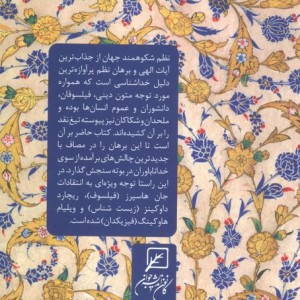 نظم شکوهمند جهان از جذاب‌ترین
آیات الهی و برهان نظم پرآوازه‌ترین
دلیل خداشناسی است که همواره
مورد توجه متون دینی، فیلسوفان،
دانشوران و عموم انسان‌ها بوده و
ملحدان و شکاکان نیز پیوسته تیغ نقد
را بر آن کشیده‌اند. کتاب حاضر بر آن
است تا این برهان را در مصاف با
جدیدترین چالش‌های برآمده از سوی
خداناباوران در بوته سنجش گذارد. در
این راستا توجه ویژه‌ای به انتقادات
جان هاسپرز (فیلسوف)، ریچارد
داوکینز (زیست شناس) و ویلیام
هاوکینگ (فیزیکدان) شده است.
کانون اندیشه جوان